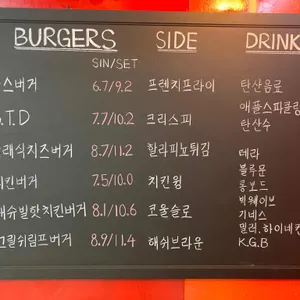 BURGERS SIDE DRINK
SIN/SET
스버거 6.7/9.2 프렌치프라이 탄산음료
.T.D 7.7/10.2 크리스피 애플스파클링
탄산수
래식치즈버거 8.7/11.2 할라피뇨튀김 테라
치킨버거 7.5/10.0 치킨윙 블루문
롱보드
내슈빌핫치킨버거 8.1/10.6 코울슬로 빅웨이브
기네스
그릴쉬림프버거 8.9/11.4 해쉬브라운 밀러.하이네켄
K.G.B